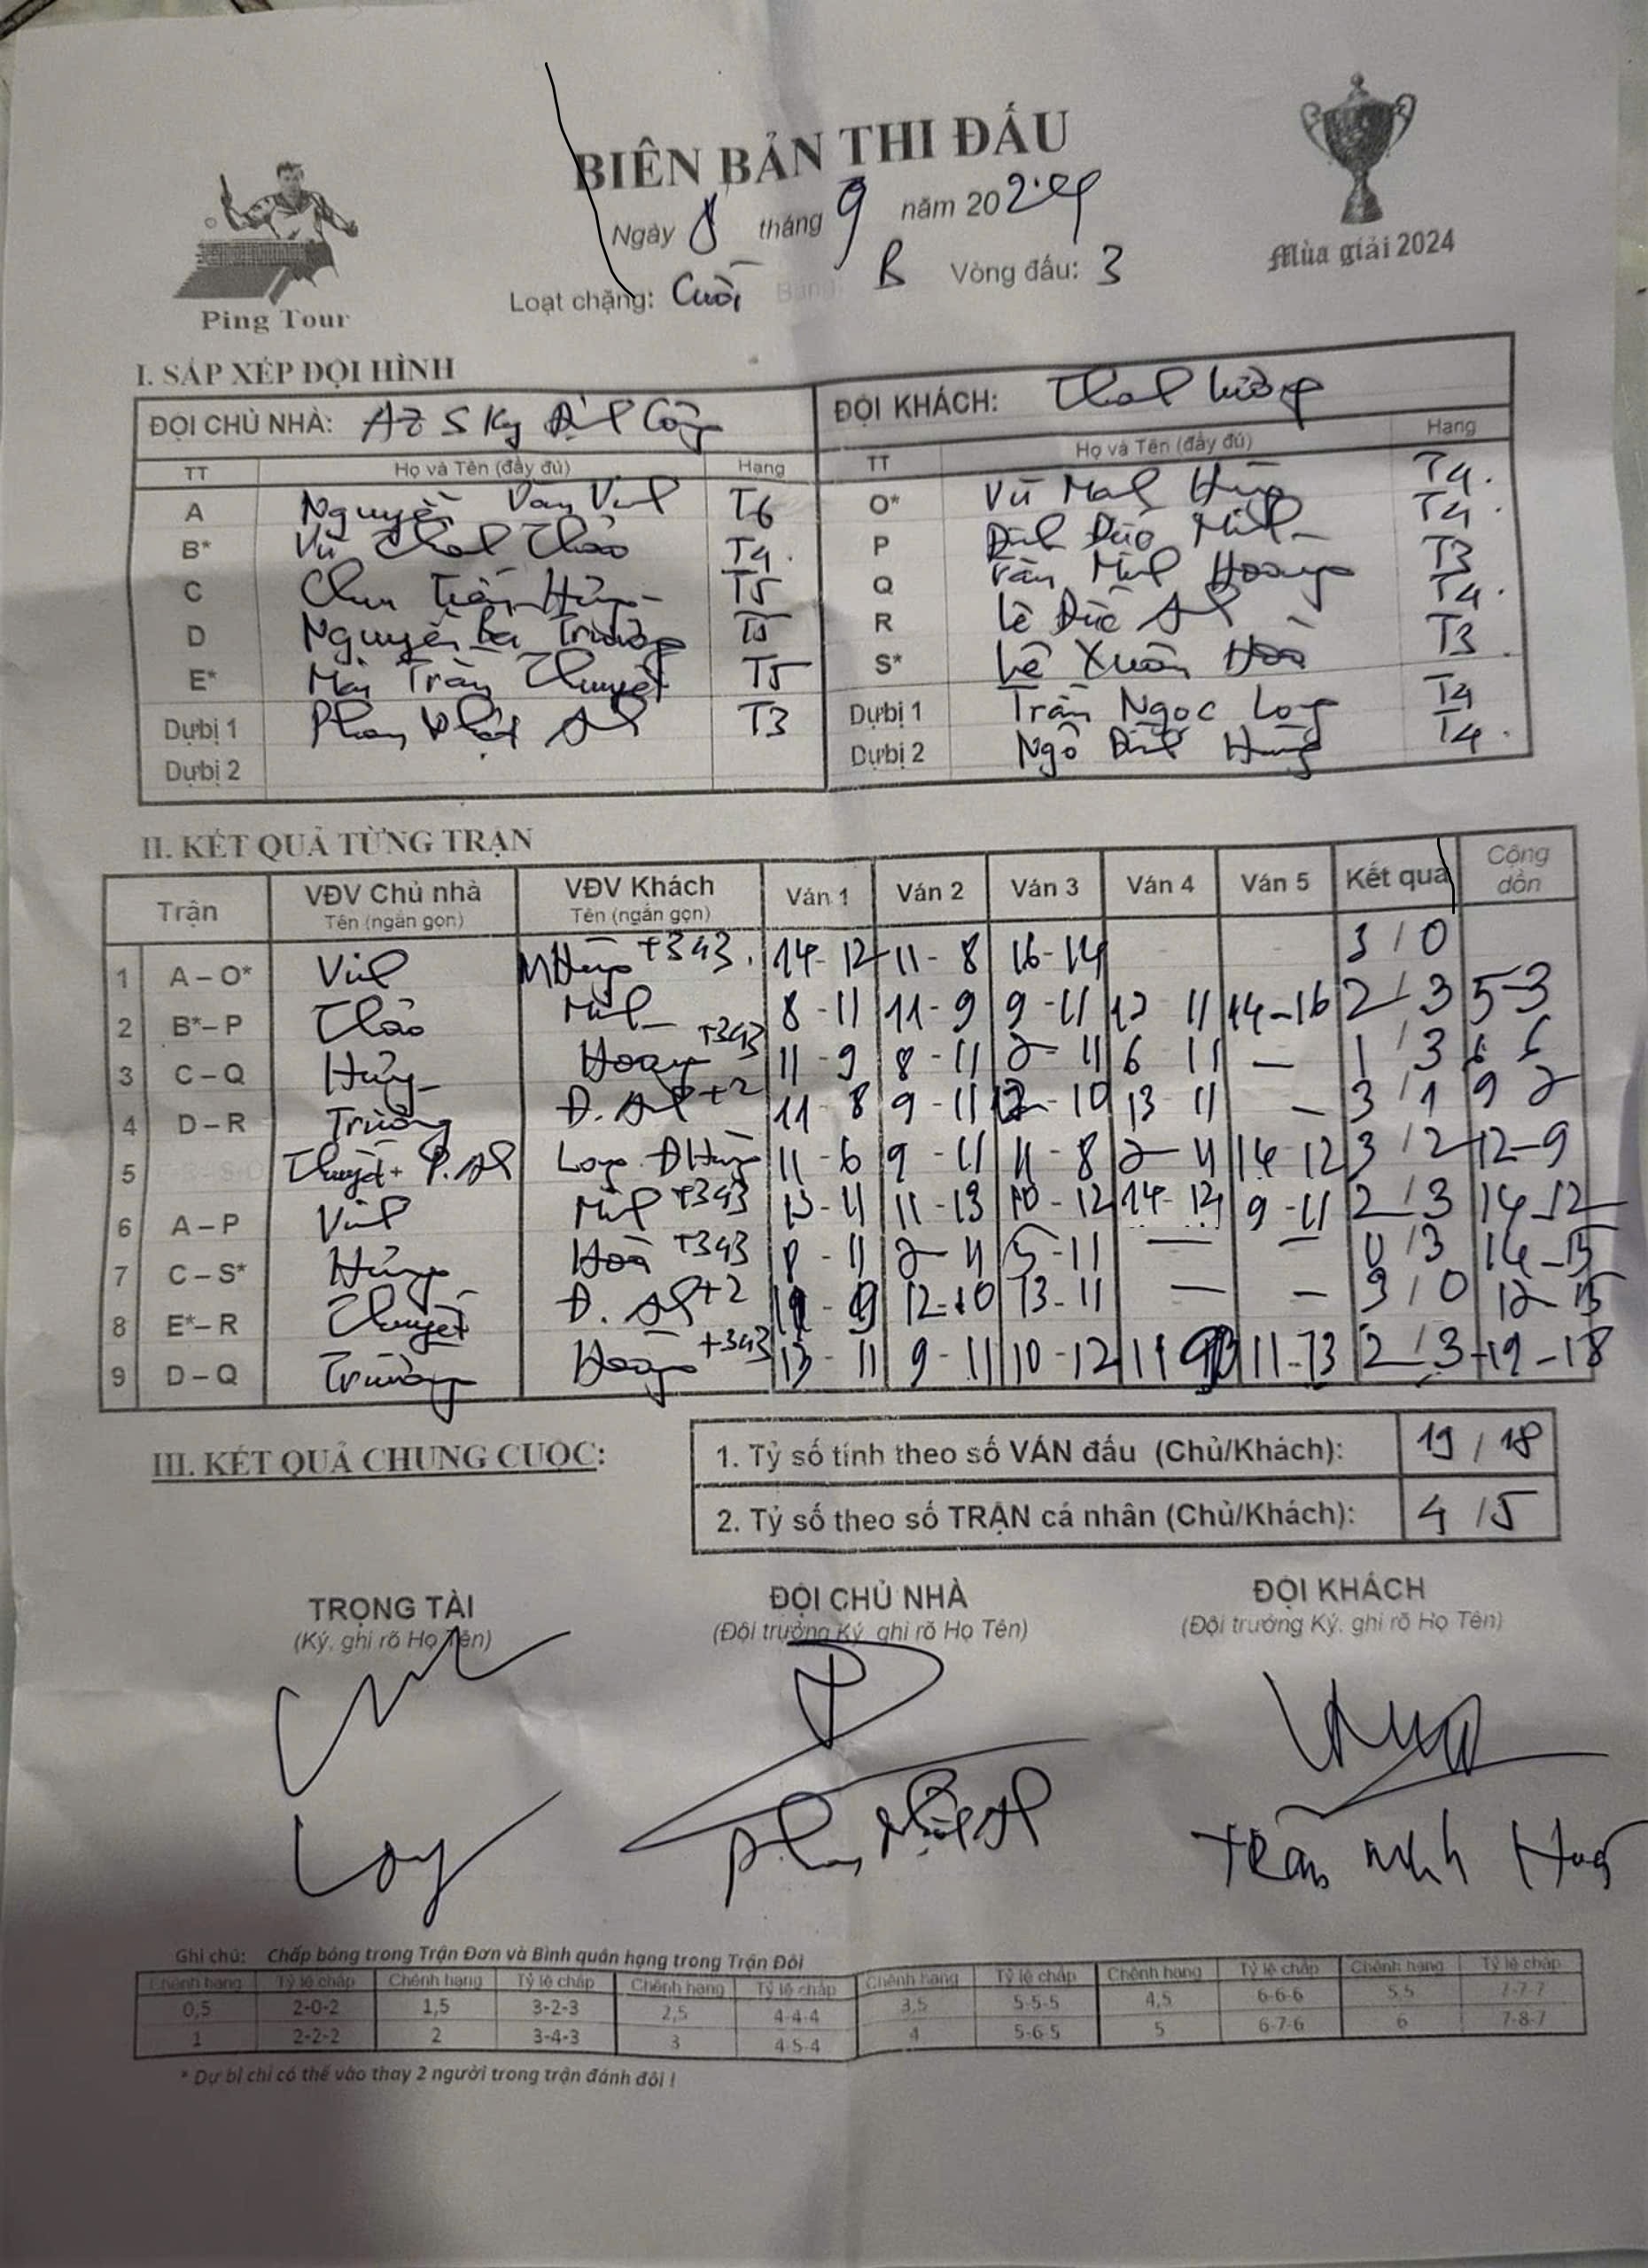 BIÊN BẢN THI ĐẤU
Ngày 8 tháng 9 năm 2024
Loạt chặng: Cuối Bảng: B Vòng đấu: 3
Ping Tour
Mùa giải 2024
I. SẮP XẾP ĐỘI HÌNH
ĐỘI CHỦ NHÀ: AZ SKy
ĐỘI KHÁCH:
TT Họ và Tên (đầy đủ) Hạng TT Họ và Tên (đầy đủ) Hạng
A Nguyễn Văn Vinh T6 O* Vũ Mạnh Hùng T4.
B* Vũ Thảo T4. P Đinh Đức Minh T4.
C Chu Tiến Hưng T5 Q Trần Minh Hoàng T3
D Nguyễn Bá Trường T5 R Lê Đức Anh T4.
E* Mai Trần Thuyết T5 S* Lê Xuân Hoà T3
Dự bị 1 Phan Nhật Anh T3 Dự bị 1 Trần Ngọc Long T4
Dự bị 2 Dự bị 2 Ngô Đình Hùng T4.
II. KẾT QUẢ TỪNG TRẬN
Trận VĐV Chủ nhà VĐV Khách Ván 1 Ván 2 Ván 3 Ván 4 Ván 5 Kết quả Cộng dồn
Tên (ngắn gọn) Tên (ngắn gọn)
1 A – O* Vinh M Hùng +343. 14-12 11-8 16-14 3/0
2 B* – P Thảo Minh 8-11 11-9 9-11 11 14-16 2/3 5-3
3 C – Q Hưng Hoàng +343 11-9 8-11 2-11 6 11 — 1/3 6 6
4 D – R Trường Đ. Anh +2 11-8 9-11 12-10 13 11 — 3/1 9
5 Thuyết + P. Anh Long. Đ Hùng 11-6 9-11 11-8 2-11 14-12 3/2 12-9
6 A – P Vinh Minh +343 13-11 11-13 10-12 14-12 9-11 2/3 14-12
7 C – S* Hưng Hoà +343 8-11 2-11 5-11 — — 0/3 14-15
8 E* – R Thuyết Đ. Anh +2 12-10 13-11 — — 3/0 15
9 D – Q Trường Hoàng +343 13-11 9-11 10-12 11 11-13 2/3 19-18
III. KẾT QUẢ CHUNG CUỘC:
1. Tỷ số tính theo số VÁN đấu (Chủ/Khách): 19/18
2. Tỷ số theo số TRẬN cá nhân (Chủ/Khách): 4/5
TRỌNG TÀI
(Ký, ghi rõ Họ Tên)
Long
ĐỘI CHỦ NHÀ
(Đội trưởng Ký, ghi rõ Họ Tên)
Phan Nhật Anh
ĐỘI KHÁCH
(Đội trưởng Ký, ghi rõ Họ Tên)
Trần Minh
Ghi chú: Chấp bóng trong Trận Đơn và Bình quân hạng trong Trận Đôi
Chênh hạng Tỷ lệ chấp Chênh hạng Tỷ lệ chấp Chênh hạng Tỷ lệ chấp Chênh hạng Tỷ lệ chấp Chênh hạng Tỷ lệ chấp Chênh hạng Tỷ lệ chấp
0,5 2-0-2 1,5 3-2-3 2,5 4-4-4 3,5 5-5-5 4,5 6-6-6 5,5 7-7-7
1 2-2-2 2 3-4-3 3 4-5-4 4 5-6-5 5 6-7-6 6 7-8-7
* Dự bị chỉ có thể vào thay 2 người trong trận đánh đôi !